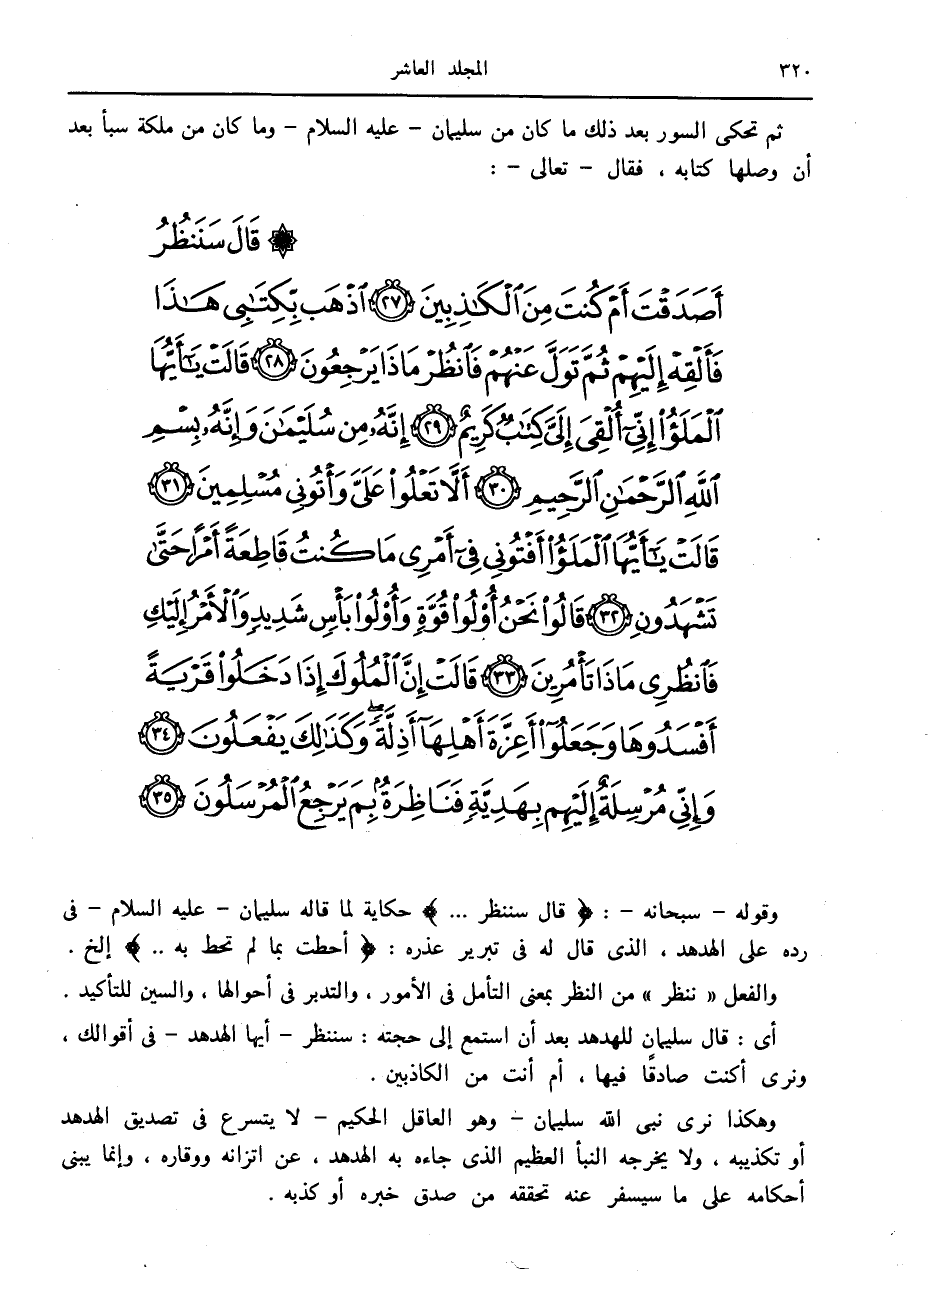 ٣٢٠
المجلد العاشر
ثم تحكى السور بعد ذلك ما كان من سليمان – عليه السلام – وما كان من ملكة سبأ بعد
أن وصلها كتابه ، فقال – تعالى – :
۞ قَالَ سَنَنظُرُ
أَصَدَقْتَ أَمْ كُنتَ مِنَ ٱلْكَٰذِبِينَ ٢٧ ٱذْهَب بِّكِتَٰبِى هَٰذَا
فَأَلْقِهْ إِلَيْهِمْ ثُمَّ تَوَلَّ عَنْهُمْ فَٱنظُرْ مَاذَا يَرْجِعُونَ ٢٨ قَالَتْ يَٰٓأَيُّهَا
ٱلْمَلَؤُا۟ إِنِّىٓ أُلْقِىَ إِلَىَّ كِتَٰبٌ كَرِيمٌ ٢٩ إِنَّهُۥ مِن سُلَيْمَٰنَ وَإِنَّهُۥ بِسْمِ
ٱللَّهِ ٱلرَّحْمَٰنِ ٱلرَّحِيمِ ٣٠ أَلَّا تَعْلُوا۟ عَلَىَّ وَأْتُونِى مُسْلِمِينَ ٣١
قَالَتْ يَٰٓأَيُّهَا ٱلْمَلَؤُا۟ أَفْتُونِى فِىٓ أَمْرِى مَا كُنتُ قَاطِعَةً أَمْرًا حَتَّىٰ
تَشْهَدُونِ ٣٢ قَالُوا۟ نَحْنُ أُو۟لُوا۟ قُوَّةٍ وَأُو۟لُوا۟ بَأْسٍ شَدِيدٍ وَٱلْأَمْرُ إِلَيْكِ
فَٱنظُرِى مَاذَا تَأْمُرِينَ ٣٣ قَالَتْ إِنَّ ٱلْمُلُوكَ إِذَا دَخَلُوا۟ قَرْيَةً
أَفْسَدُوهَا وَجَعَلُوٓا۟ أَعِزَّةَ أَهْلِهَآ أَذِلَّةً ۖ وَكَذَٰلِكَ يَفْعَلُونَ ٣٤
وَإِنِّى مُرْسِلَةٌ إِلَيْهِم بِهَدِيَّةٍ فَنَاظِرَةٌۢ بِمَ يَرْجِعُ ٱلْمُرْسَلُونَ ٣٥
وقوله – سبحانه – : ﴿ قال سننظر ... ﴾ حكاية لما قاله سليمان – عليه السلام – فى
رده على الهدهد ، الذى قال له فى تبرير عذره : ﴿ أحطت بما لم تحط به .. ﴾ إلخ .
والفعل « ننظر » من النظر بمعنى التأمل فى الأمور ، والتدبر فى أحوالها ، والسين للتأكيد .
أى : قال سليمان للهدهد بعد أن استمع إلى حجته : سننظر – أيها الهدهد – فى أقوالك ،
ونرى أكنت صادقًا فيها ، أم أنت من الكاذبين .
وهكذا نرى نبى الله سليمان – وهو العاقل الحكيم – لا يتسرع فى تصديق الهدهد
أو تكذيبه ، ولا يخرجه النبأ العظيم الذى جاءه به الهدهد ، عن اتزانه ووقاره ، وإنما يبنى
أحكامه على ما سيسفر عنه تحققه من صدق خبره أو كذبه .